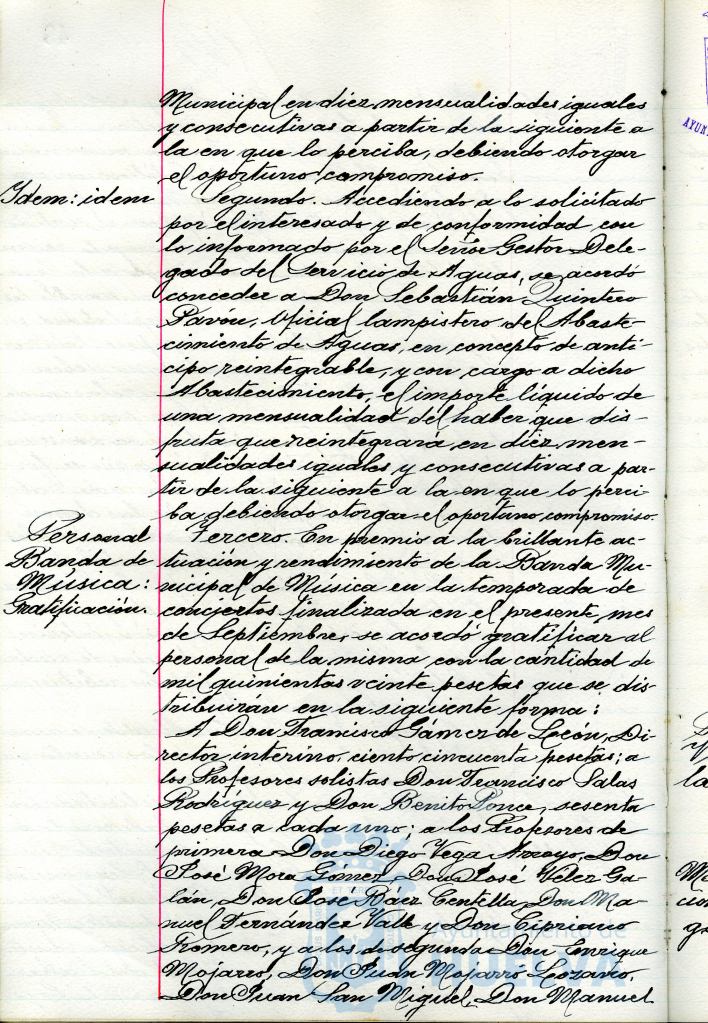 Municipal en diez mensualidades iguales
y consecutivas a partir de la siguiente a
la en que lo perciba, debiendo otorgar
el oportuno compromiso.
Idem: idem
Segundo. Accediendo a lo solicitado
por el interesado y de conformidad con
lo informado por el Señor Gestor Dele-
gado del Servicio de Aguas, se acordó
conceder a Don Sebastián Quintero
Pavón, Oficial lampistero del Abaste-
cimiento de Aguas, en concepto de anti-
cipo reintegrable, y con cargo a dicho
Abastecimiento, el importe líquido de
una mensualidad del haber que dis-
fruta que reintegrará en diez men-
sualidades iguales y consecutivas a par-
tir de la siguiente a la en que lo perci-
ba debiendo otorgar el oportuno compromiso.
Personal
Banda de
Música:
Gratificación.
Tercero. En premio a la brillante ac-
tuación y rendimiento de la Banda Mu-
nicipal de Música en la temporada de
conciertos finalizada en el presente mes
de Septiembre, se acordó gratificar al
personal de la misma con la cantidad de
mil quinientas veinte pesetas que se dis-
tribuirán en la siguiente forma:
A Don Francisco Gámez de León, Di-
rector interino, ciento cincuenta pesetas; a
los Profesores solistas Don Francisco Salas
Rodríguez y Don Benito Ponce, sesenta
pesetas a cada uno; a los Profesores de
primera Don Diego Vega Arroyo, Don
José Mora Gómez, Don José Velez Ga-
lán, Don José Báez Centella, Don Ma-
nuel Fernández Valle y Don Cipriano
Romero, y a los de segunda Don Enrique
Mojarro, Don Juan Mojarro Lozano,
Don Juan San Miguel, Don Manuel